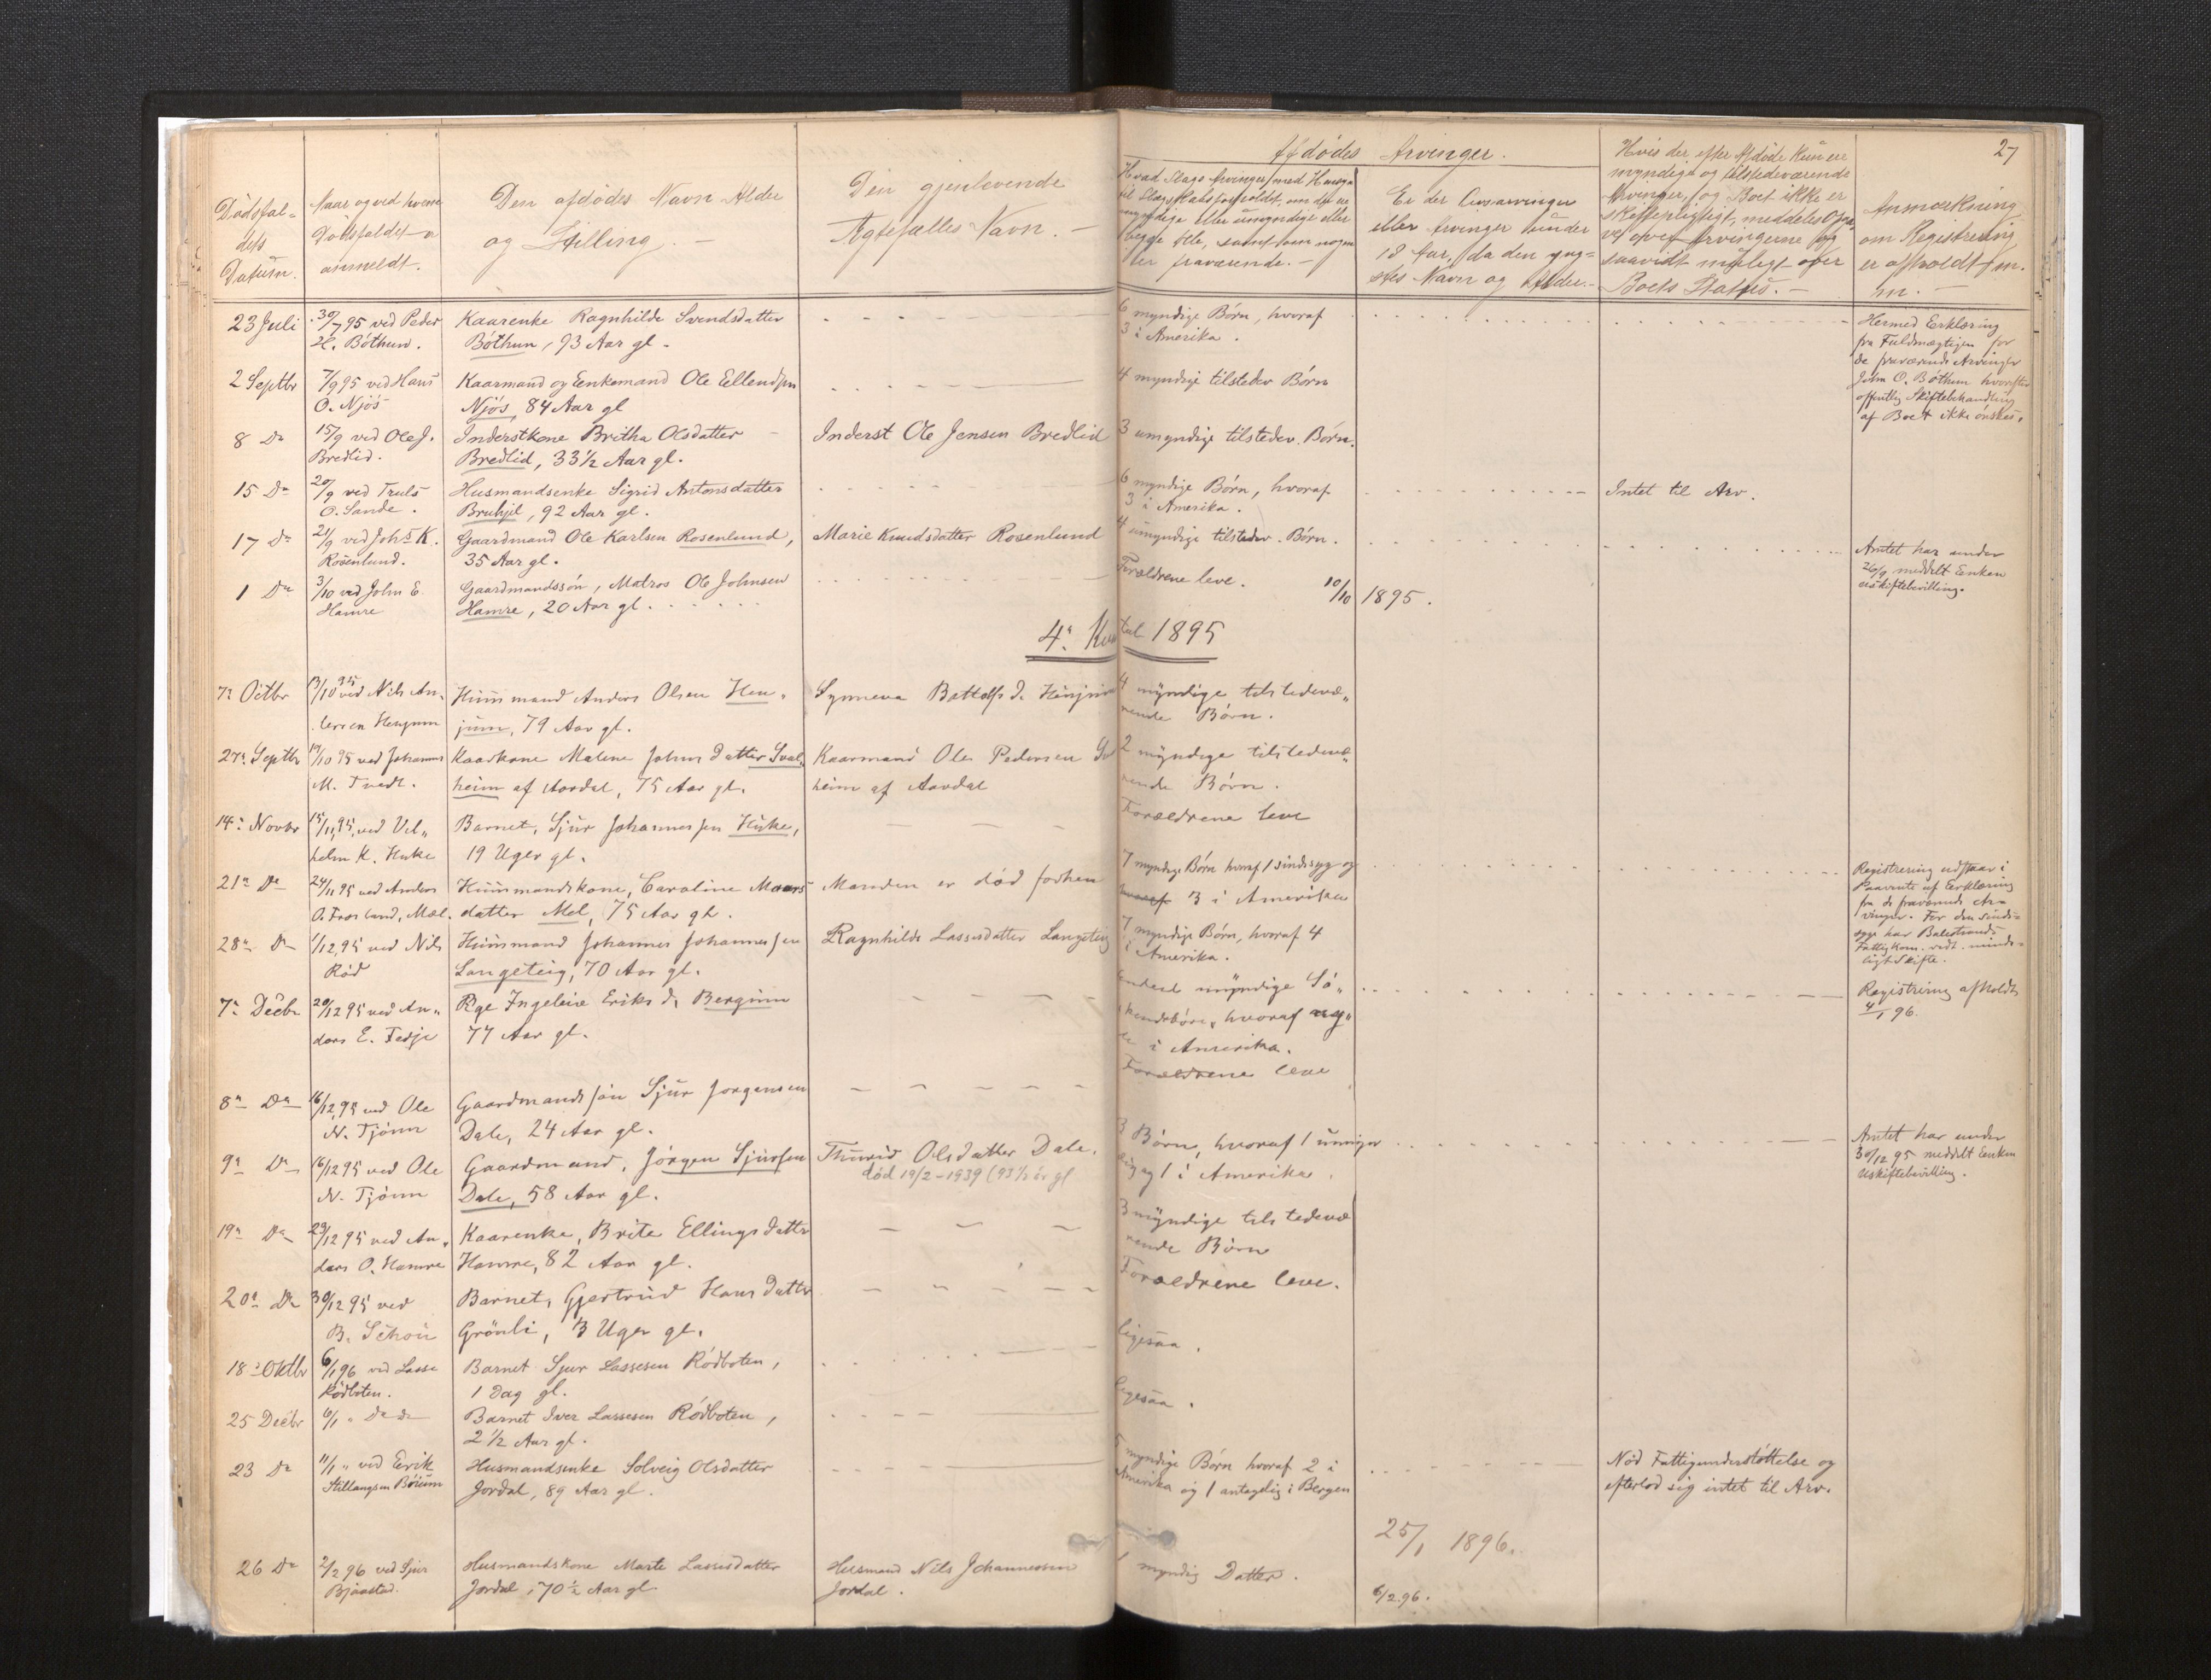 27
Dödsfal-
dets
Datum.
Naar og ved hvem
Dödsfaldet er
anmeldt.
Den afdödes Navn Alder
og Stilling. —
Den gjenlevende
Ægtefælles Navn. —
Afdödes Arvinger.
Hvad Slags Arvinger, med Hensyn
til Slægtskabsforholdet, om de ere
myndige eller umyndige eller
begge Dele, samt om nogen
er fraværende. —
Er der Livsarvinger
eller Arvinger under
18 Aar, da den yng-
stes Navn og Alder. —
Hvis der efter Afdöde kun er
myndige og tilstedeværende
Arvinger, og Boet ikke er
skiftepligtigt, meddeles Opga-
ve over Arvingerne og
saavidt muligt over
Boets Status. —
Anmærkning
om Registrering
er afholdt m.
m. —
23 Juli
30/7 95 ved Peder
Bóthun.
Kaarenke Ragnhilde Svendsdatter
Bóthun, 93 Aar gl.
6 myndige Børn, hvoraf
3 i Amerika.
Hermed Erklæring
fra Fuldmægtigen for
de fraværende Arvinger
John O. Bóthun hvorefter
offentlig Skiftebehandling
af Boet ikke ónskes.
2 Septbr
7/9 95 ved Hans
O. Njós
Kaarmand og Enkemand Ole Ellendsen
Njós, 84 Aar gl
4 myndige tilstedev Børn
8 Do
15/9 ved Ole J.
Bredlid.
Inderstkone Britha Olsdatter
Bredlid, 33½ Aar gl.
Inderst Ole Jensen Bredlid
3 umyndige tilstedev. Børn.
15 Do
20/9 ved Truls
O. Sande.
Husmandsenke Sigrid Antonsdatter
Bruhjil, 92 Aar gl.
6 myndige Børn, hvoraf
3 i Amerika.
Intet til Arv.
17 Do
21/9 ved Johs K.
Rosenlund.
Gaardmand Ole Karlsen Rosenlund,
35 Aar gl.
Marie Knudsdatter Rosenlund
4 umyndige tilstedev. Børn.
Amtet har under
26/9 meddelt Enken
Uskiftebevilling.
1 Do
3/10 ved John E.
Hamre
Gaardmandssón, Matros Ole Johnsen
Hamre, 20 Aar gl.
Forældrene leve.
10/10 1895.
4. Kvartal 1895
7. Octbr
13/10 95 ved Nils An-
dersen Henjum
Huusmand Anders Olsen Hen-
jum, 79 Aar gl.
Synneva Bottolfs d. Henjum
4 myndige tilstedevæ-
rende Børn.
27. Septbr
19/10 95 ved Johannes
M. Tvedt.
Kaarkone Malene Johns datter Sval-
heim af Aardal, 75 Aar gl.
Kaarmand Ole Pedersen Sval
heim af Aardal
2 myndige tilstedevæ-
rende Børn.
14. Novbr
15/11 95, ved Vil-
helm K. Huke
Barnet, Sjur Johannessen Huke,
19 Uger gl.
Forældrene leve
21. Do
24/11 95 ved Anders
O. Froslund, Mæl.
Huusmandskone, Caroline Maars
datter Mel, 75 Aar gl.
Manden er død forhen
7 myndige Børn hvoraf 1 sindssyg og
hvoraf 3 i Amerika
Registrering udstaar i
Paavente af Erklæring
fra de fraværende Ar-
vinger. For den sinds-
syge har Balestrands
Fattigkom. vedt. minde-
ligt Skifte.
28. Do
1/12 95 ved Nils
Rød
Huusmand Johannes Johannessen
Langeteig, 70 Aar gl.
Ragnhilde Lassesdatter Langeteig
7 myndige Børn, hvoraf 4
i Amerika.
7. Decbr
20/12 95 ved An-
ders E. Fedje
Pige Ingeleiv Eriks d. Bergum
77 Aar gl.
myndige Sö-
skendebörn, hvoraf
i Amerika.
Registrering afholdt
4/1 96.
8. Do
16/12 95 ved Ole
N. Tjönn
Gaardmandssön Sjur Jorgensen
Dale, 24 Aar gl.
Forældrene leve
9. Do
16/12 95 ved Ole
N. Tjönn
Gaardmand, Jörgen Sjursen
Dale, 58 Aar gl.
Thurid Olsdatter Dale.
død 19/2 - 1939 (93½ år gl
3 Børn, hvoraf 1 umyn
dig og 1 i Amerika.
Amtet har under
30/12 95 meddelt Enken
Uskiftebevilling.
19. Do
23/12 95 ved An-
ders O. Hamre
Kaarenke, Brite Ellings datter
Hamre, 82 Aar gl.
3 myndige tilstedevæ
rende Börn
20. Do
30/12 95 ved
B. Schou
Barnet, Gjertrud Hans datter
Grönli, 3 Uger gl.
Forældrene leve.
18. Oktbr
6/1 96 ved Lasse
Rödboten.
Barnet Sjur Lassesen Rödboten,
1 Dag gl.
ligesaa.
25 Decbr
6/1 „ Do do
Barnet Iver Lassesen Rödboten,
2½ Aar gl.
ligesaa.
23 Do
11/1 „ ved Eerik
Stillaugsen Bóium
Husmandsenke Solveig Olsdatter
Jordal, 89 Aar gl.
5 myndige Børn hvoraf 2 i
Amerika og 1 antagelig i Bergen
Nød Fattigunderstóttelse og
efterlod sig intet til Arv.
25/1 1896.
26 Do
2/2 96 ved Sjur
Bjaastad.
Husmandskone Marte Lassisdatter
Jordal, 70½ Aar gl.
Husmand Nils Johannessen
Jordal.
1 myndig Datter.
6/2 96.